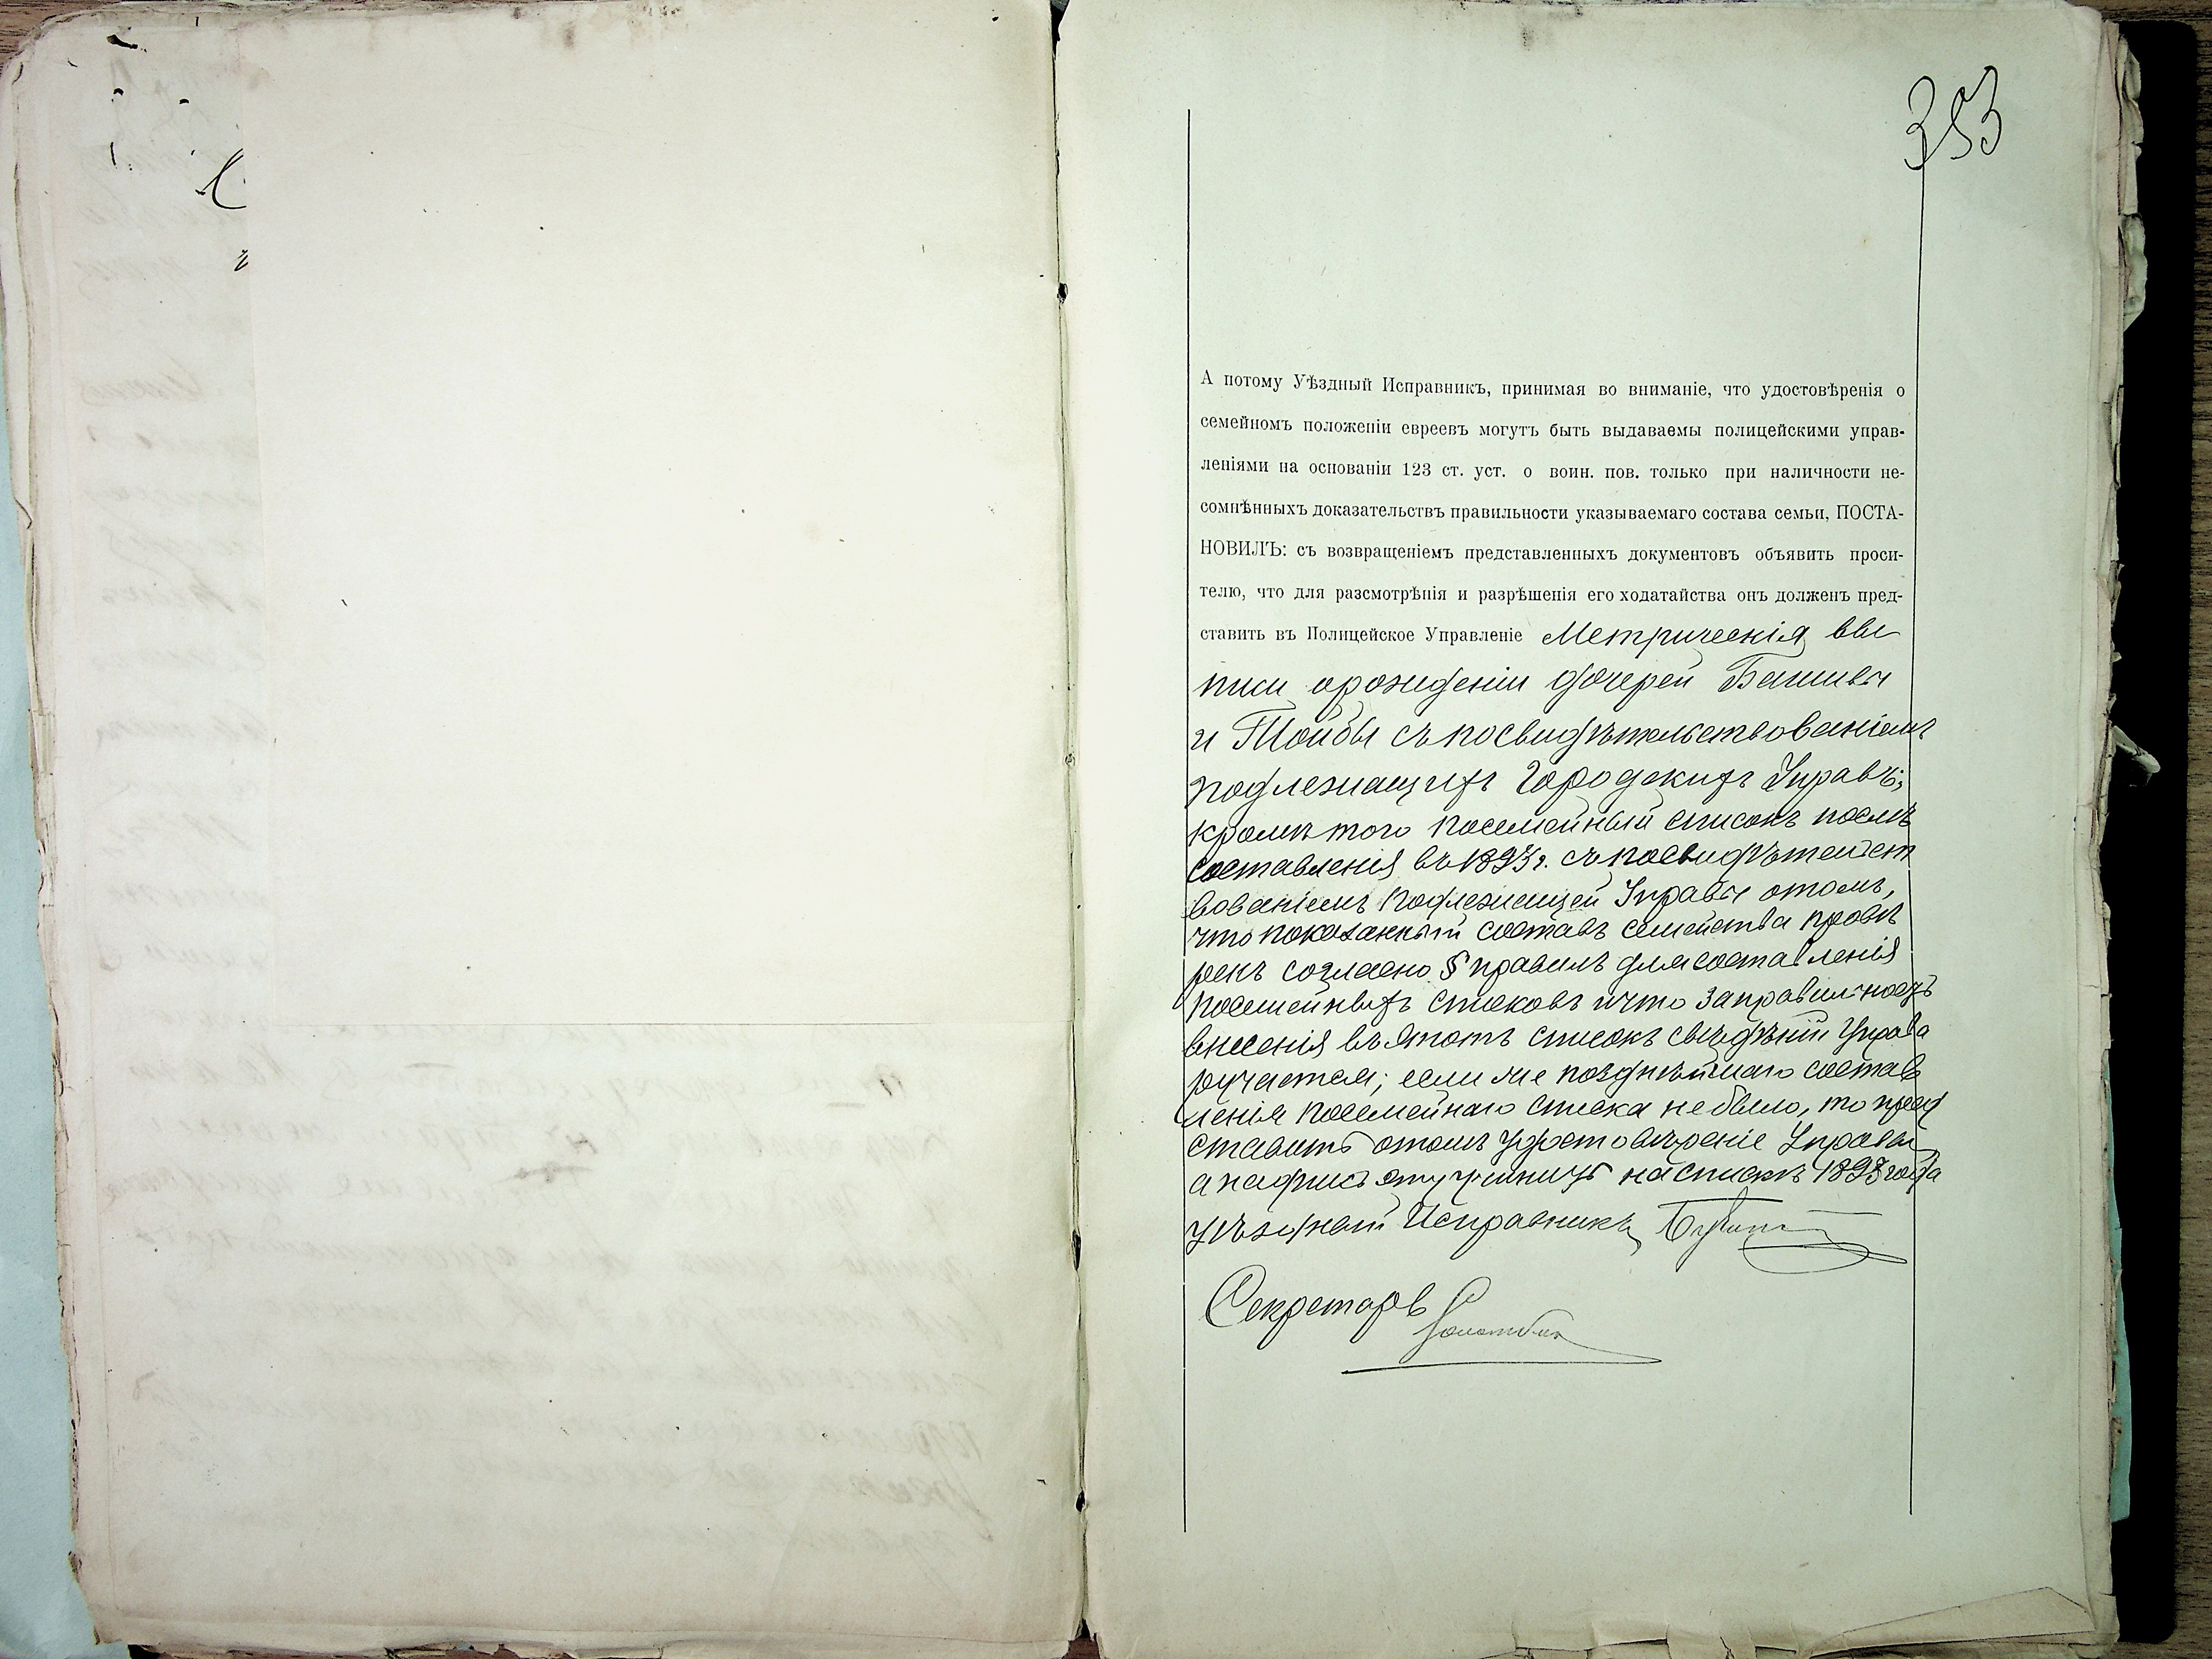 353
А потому Уѣздный Исправникъ, принимая во вниманіе, что удостовѣренія о
семейномъ положеніи евреевъ могутъ быть выдаваемы полицейскими управ-
леніями на основаніи 123 ст. уст. о воин. пов. только при наличности не-
сомнѣнныхъ доказательствъ правильности указываемаго состава семьи, ПОСТА-
НОВИЛЪ: съ возвращеніемъ представленныхъ документовъ объявить проси-
телю, что для разсмотрѣнія и разрѣшенія его ходатайства онъ долженъ пред-
ставить въ Полицейское Управленіе Метрическія вы
писи о рожденіи дочерей Башивы
и Тойбы съ посвидѣтельствованіемъ
подлежащихъ Городскихъ Управъ;
кромѣ того посемейный списокъ послѣ
составленія въ 1893 г. съ посвидѣтельст
вованіемъ подлежащей Управы о томъ,
что показанный составъ семейства провѣ
ренъ согласно § правилъ для составленія
посемейныхъ списковъ и что за правильность
внесенія въ этотъ списокъ свѣдѣній Управа
ручается; если же позднѣйшаго состав
ленія посемейнаго списка не было, то пред
ставить о томъ удостовѣреніе Управы
а надпись эту учинить на спискѣ 1893 года
Уѣздный Исправникъ
Секретарь